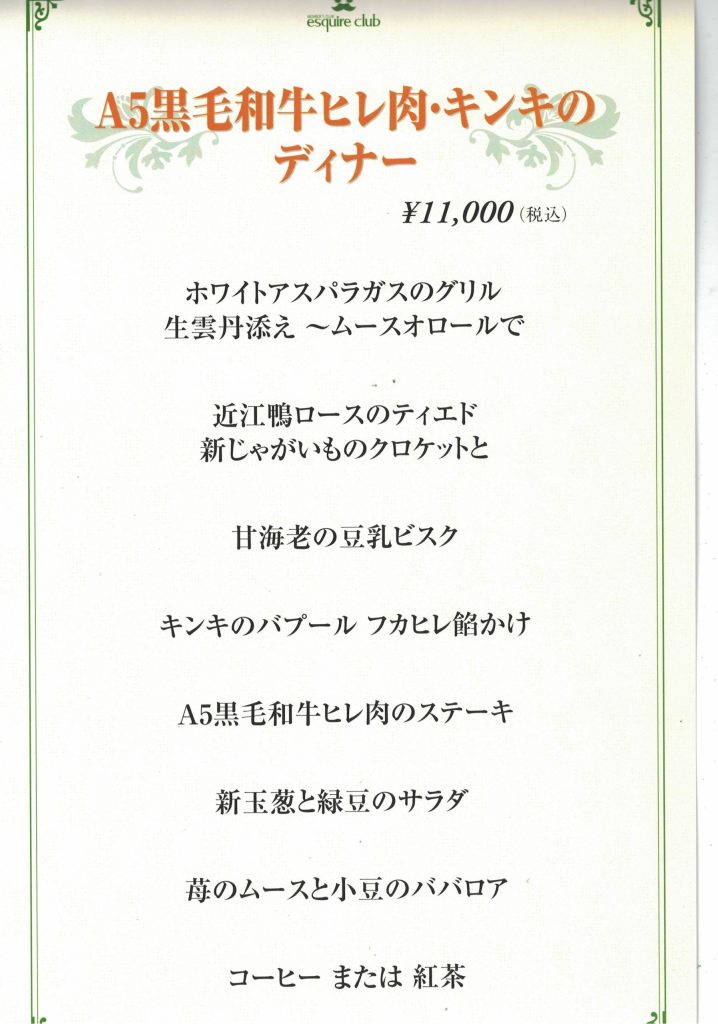 MEMBER'S CLUB
esquire club
A5黒毛和牛ヒレ肉・キンキの
ディナー
¥11,000(税込)
ホワイトアスパラガスのグリル
生雲丹添え ～ムースオロールで
近江鴨ロースのティエド
新じゃがいものクロケットと
甘海老の豆乳ビスク
キンキのバプール フカヒレ餡かけ
A5黒毛和牛ヒレ肉のステーキ
新玉葱と緑豆のサラダ
苺のムースと小豆のババロア
コーヒー または 紅茶